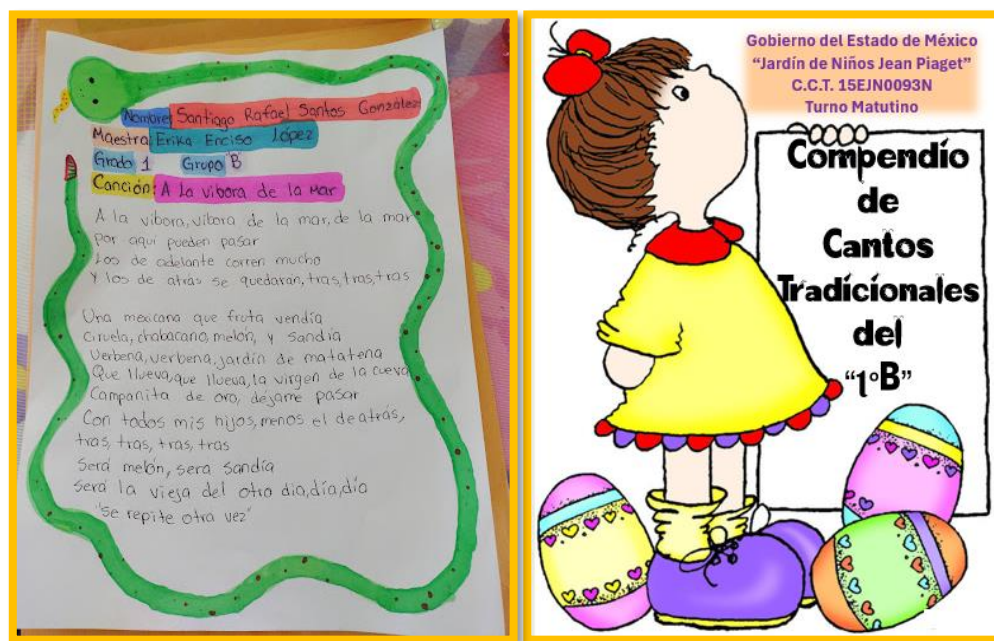 Nombre: Santiago Rafael Santos González
Maestra: Erika Enciso López
Grado 1 Grupo B
Canción: A la vibora de la Mar
A la vibora, vibora de la mar, de la mar
Por aquí pueden pasar
Los de adelante corren mucho
Y los de atrás se quedaran, tras, tras, tras
Una mexicana que fruta vendía
Ciruela, chabacano, melón, y sandía
Verbena, verbena, jardín de matatena
Que llueva, que llueva, la virgen de la cueva
Campanita de oro, déjame pasar
Con todos mis hijos, menos el de atrás,
tras, tras, tras, tras
Será melón, sera sandía
Será la vieja del otro dia, día, día
"Se repite otra vez"
Gobierno del Estado de México
"Jardín de Niños Jean Piaget"
C.C.T. 15EJN0093N
Turno Matutino
Compendio
de
Cantos
Tradicionales
del
"1°B"